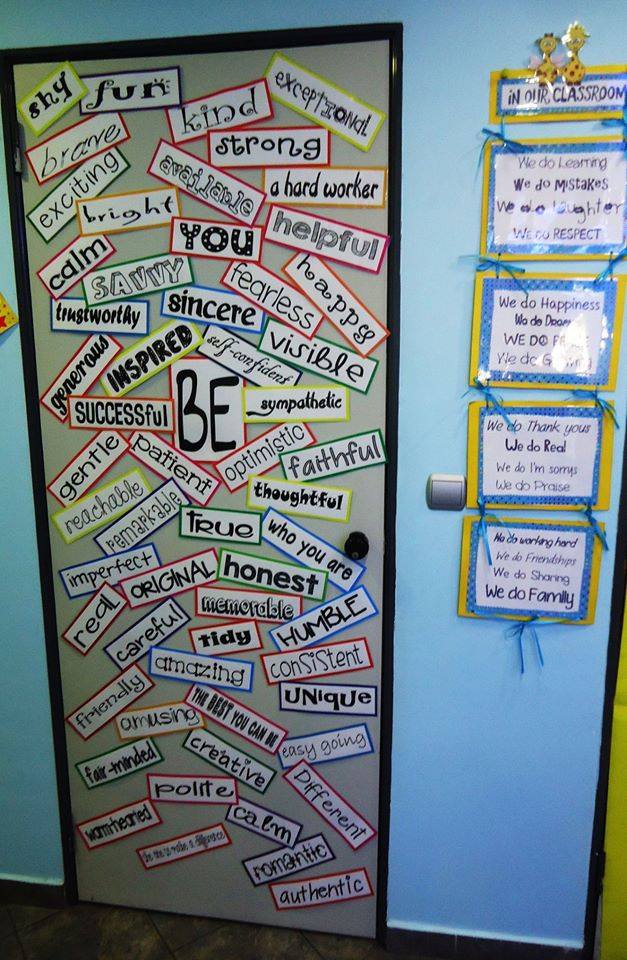 shy
fun
kind
exceptional
brave
strong
exciting
available
a hard worker
bright
YOU
helpful
calm
SAVVY
fearless
happy
trustworthy
sincere
generous
INSPIRED
self-confident
visible
SUCCESSful
BE
sympathetic
gentle
patient
optimistic
faithful
reachable
remarkable
thoughtful
true
who you are
imperfect
ORIGINAL
honest
real
careful
memorable
HUMBLE
tidy
amazing
consistent
friendly
UNIQUE
amusing
THE BEST YOU CAN BE
easy going
fair-minded
creative
polite
Different
warmhearted
calm
the one to make a difference
romantic
authentic
iN OUR CLASSROOM
We do Learning
We do MiSTAKES
We do Laughter
WE do RESPECT
We do Happiness
We do
WE DO
We do
We do Thank yous
We do Real
We do I'm sorrys
We do Praise
We do working hard
We do Friendships
We do Sharing
We do FamIly